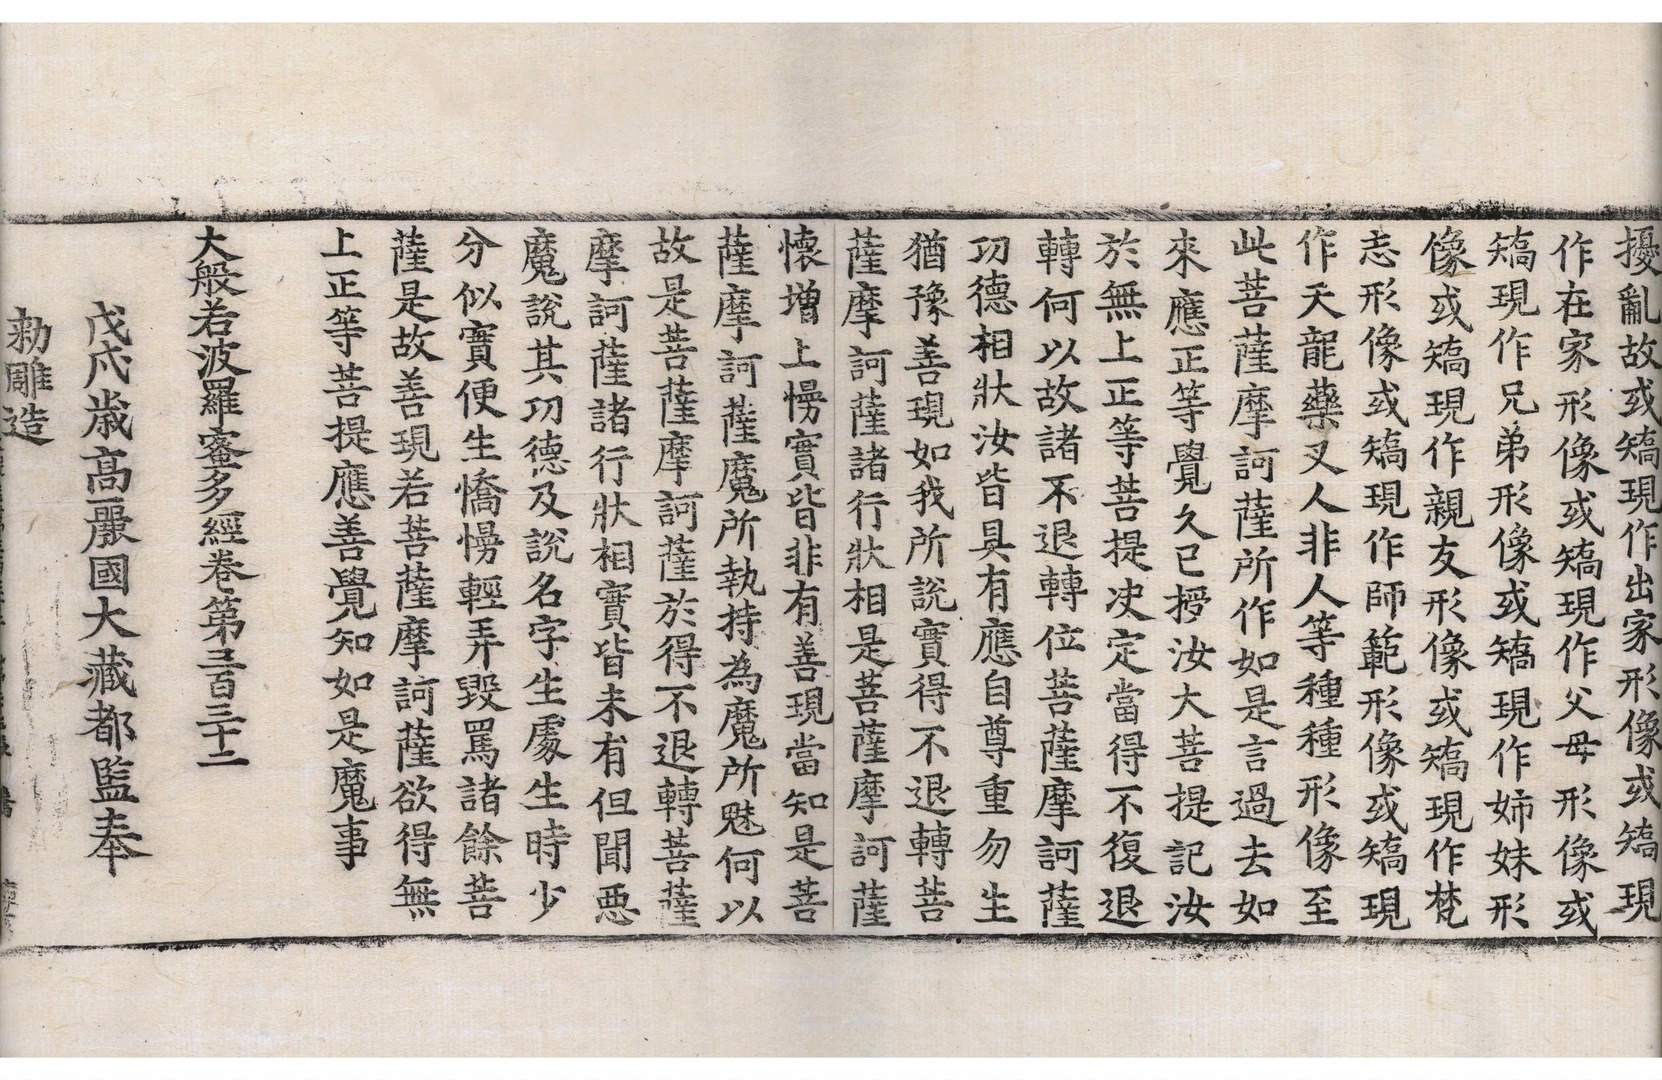 擾亂故或矯現作出家形像或矯現
作在家形像或矯現作父母形像或
矯現作兄弟形像或矯現作姉妹形
像或矯現作親友形像或矯現作梵
志形像或矯現作師範形像或矯現
作天龍藥叉人非人等種種形像至
此菩薩摩訶薩所作如是言過去如
來應正等覺久已授汝大菩提記汝
於無上正等菩提决定當得不復退
轉何以故諸不退轉位菩薩摩訶薩
功德相狀汝皆具有應自尊重勿生
猶豫善現如我所說實得不退轉菩
薩摩訶薩諸行狀相是菩薩摩訶薩
懷增上慢實皆非有善現當知是菩
薩摩訶薩魔所執持為魔所魅何以
故是菩薩摩訶薩於得不退轉菩薩
摩訶薩諸行狀相實皆未有但聞惡
魔說其功德及說名字生處生時少
分似實便生憍慢輕弄毀罵諸餘菩
薩是故善現若菩薩摩訶薩欲得無
上正等菩提應善覺知如是魔事
大般若波羅蜜多經卷第三百三十二
戊戌歲高麗國大藏都監奉
勑雕造